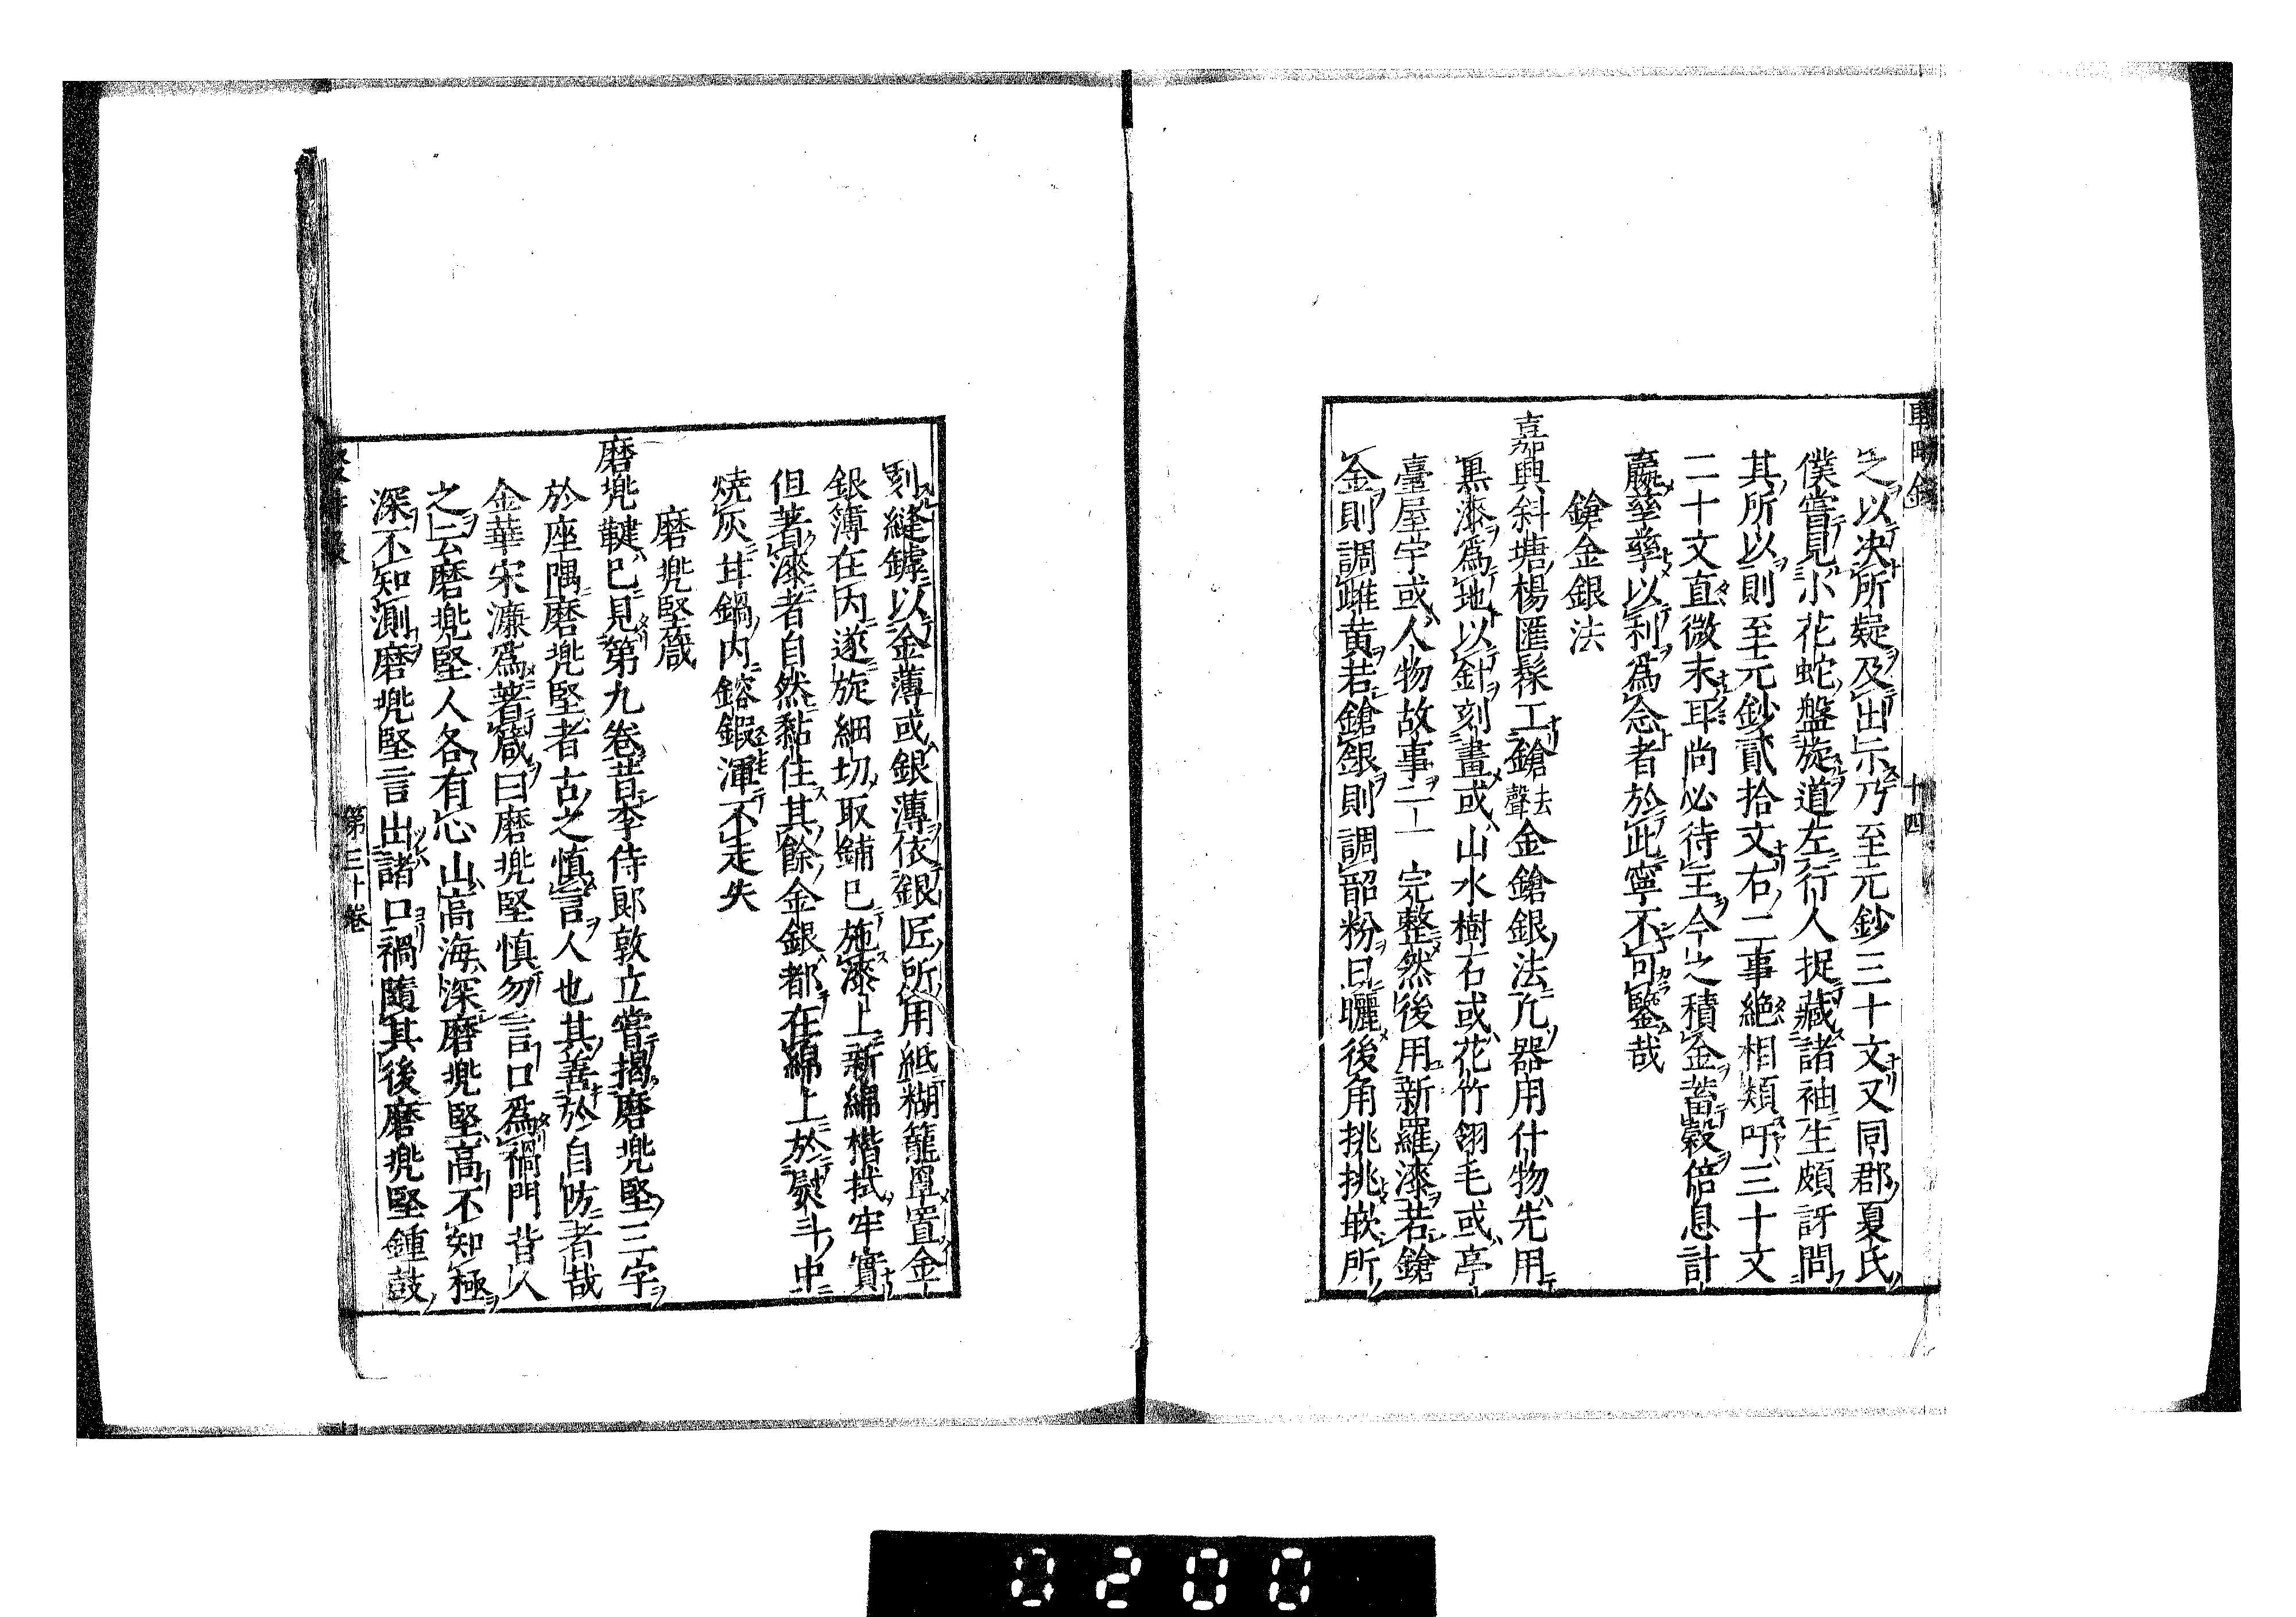 之以決所疑及出示乃至元鈔三十文又同郡夏氏
僕嘗見小花蛇盤旋道左行人捉藏諸袖生頗訝問
其所以則至元鈔貳拾文右二事絶相類吁三十文
二十文直微末耳尚必待主今之積金蓄穀倍息計
贏孳孳以利爲念者於此寧不可鑒哉
鎗金銀法
嘉興斜塘楊匯髹工鎗去聲金鎗銀法凡器用什物先用
黒漆爲地以針刻畫或山水樹石或花竹翎毛或亭
臺屋宇或人物故事一一完整然後用新羅漆若鎗
金則調雌黄若鎗銀則調韶粉日曬後角挑挑嵌所
刻縫罅以金薄或銀薄依銀匠所用紙糊籠罩置金
銀簿在内遂旋細切取鋪已施漆上新綿楷拭牢實
但著漆者自然黏住其餘金銀都在綿上於熨斗中
燒灰甘鍋内鎔鍜渾不走失
磨兠堅箴
磨兠鞬已見第九卷昔李侍郎敦立嘗揭磨兠堅三字
於座隅磨兠堅者古之慎言人也其善於自防者哉
金華宋濂爲著箴曰磨兠堅慎勿言口爲禍門昔人
之云磨兠堅人各有心山高海深磨兠堅高不知極
深不知測磨兠堅言出諸口禍隨其後磨兠堅鍾鼓
十四
第三十卷
0200